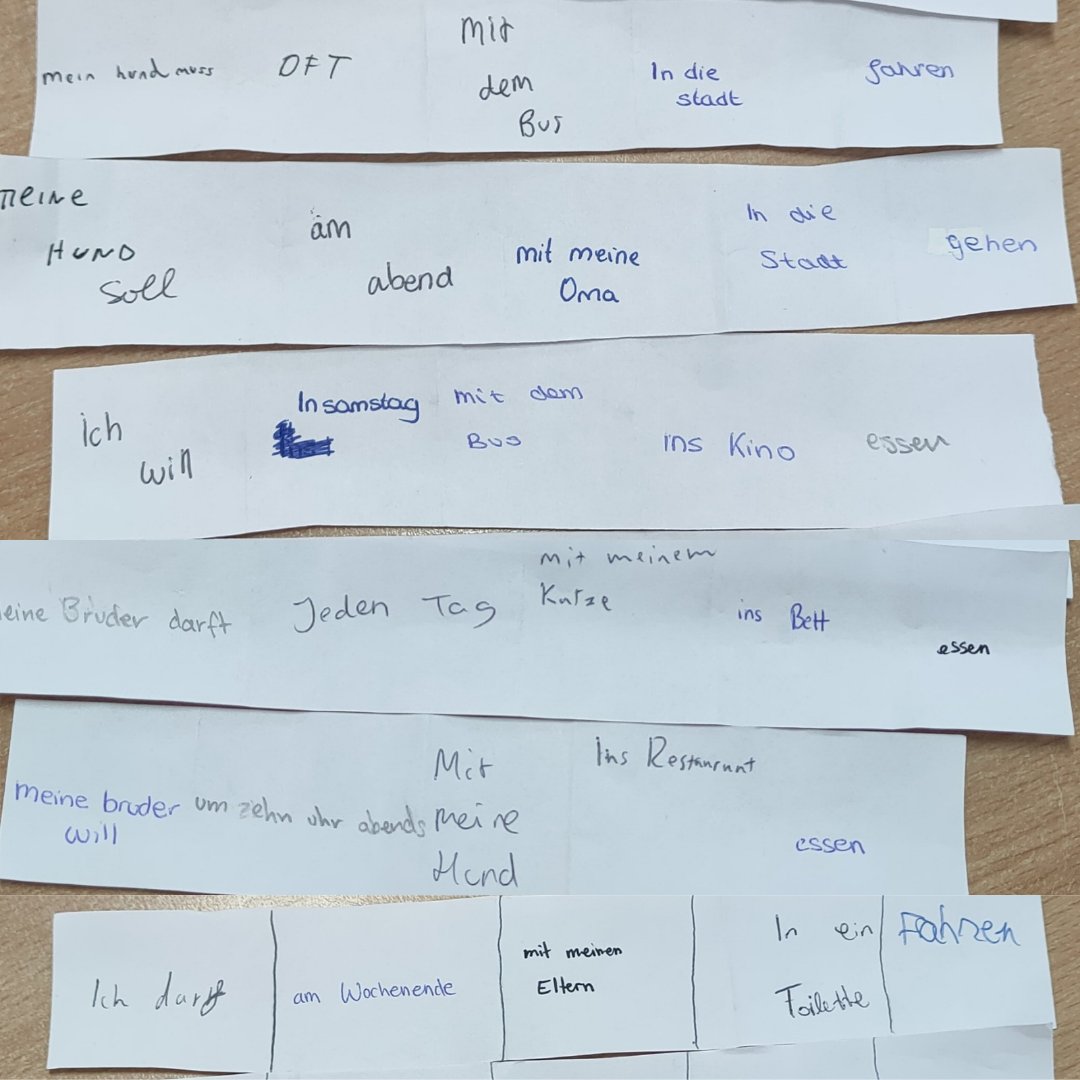 mein hund muss OFT Mit dem Bus In die stadt fahren
meine HUND soll am abend mit meine Oma In die Stadt gehen
ich will In samstag mit dem Bus ins Kino essen
eine Bruder darft Jeden Tag mit meinem Katze ins Bett essen
meine bruder will um zehn uhr abends Mit meine Hund Ins Restaurant essen
Ich darf am Wochenende mit meinen Eltern In ein Toilette Fahren